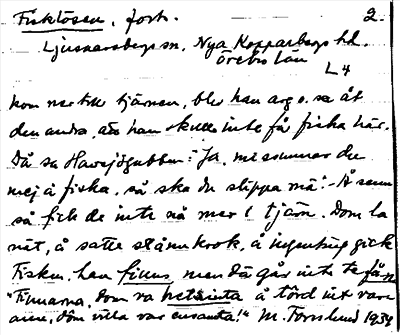 Fisklösen, forts. 2.
Ljusnarsbergs sn. Nya Kopparbergs hd.
Örebro län
L4
kom ner till tjärnen, ble han arg o. sa åt
den andra, att han skulle inte få fiska här.
Då sa Havsjögubben: "Ja, me samma du
mej å fiska, så ska du slippa må". - Å sen
så fick de inte nå mer i tjärn. Dom la
nät, å satte stånnkrok, å ingenting gick
Fisken, han finns, men dä går inte te få'n
"Finnarna, dom va hetsinta å törd int vara
dom villa var ensamta!" M. Forslund 1934